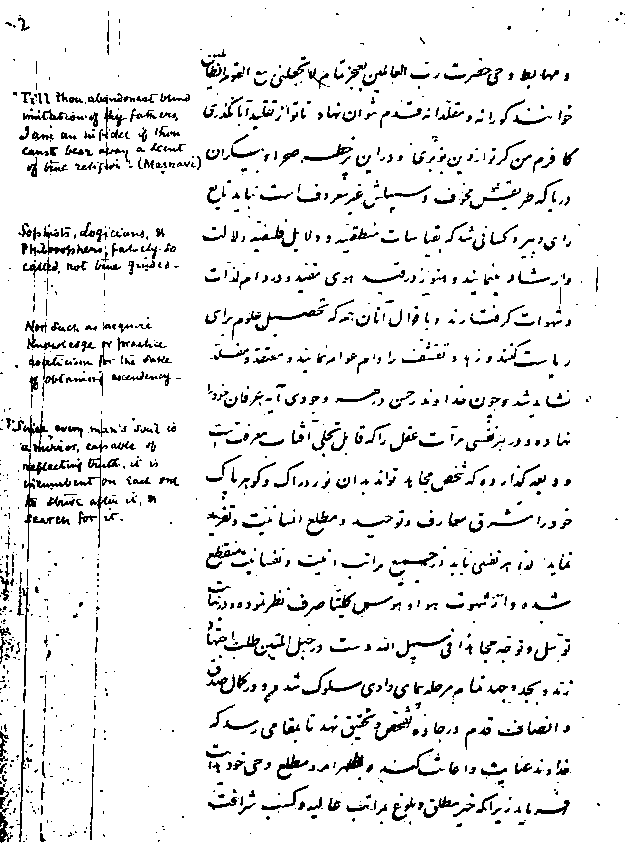 2
و مهابط وحی حضرت رب العالمین بعجز تمام لا تجعلنی مع القوم الظالمین
خواهند کورانه و مقلدانه قدم نتوان نهاد تا تو از تقلید آبا نگذری
کافرم من گر تو از دین بو بری و در این صحراء بیکران
دریا که طریقش مخوف و سبیلش غیر معروف است نباید تابع
رای و پیرو کسانی شد که بقیاسات منطقیه و دلایل فلسفیه دلالت
وارشاد مینمایند و هنوز در قید هوی مقید و در دام لذات
و شهوات گرفتارند و باقوال آنان هم که تحصیل علوم برای
ریاست کنند و زهد و تقشف را دام عوام نمایند معتقد و مقلد
نشاید شد و چون خداوند رحمن در هر وجودی آیه عرفان خود را
نهاده و در هر نفسی مرآت عقل را که قابل تجلی آفتاب معرفت است
ودیعه گذارده که شخص مجاهد تواند بدان نور دراک و گوهر پاک
خود را مشرق معارف و توحید و مطلع انسانیت و تفرید
نماید لذا هر نفسی باید از جمیع مراتب انیت و نفسانیت منقطع
شده و از شهوت هوا و هوس کلیتا صرف نظر نموده و در نهایت
توسل و توجه مجاهدا فی سبیل الله دست در حبل المتین طلب و اجتهاد
زند و بجد و جهد تمام مرحله پیمای وادی سلوک شده و در کمال صدق
و انصاف قدم در جاده تفحص و تحقیق نهد تا بمقامی رسد که
خداوند عنایت و اعانت کند و بمظهر امر و مطلع وحی خود هدایت
فرماید زیرا که خیر مطلق و بلوغ بمراتب عالیه و کسب شرافت
"Till thou abandonest blind
imitation of thy fathers,
I am an infidel if thou
canst bear away a scent
of true religion". (Masnavi)
Sophists, Logicians, &
Philosophers, falsely so
called, not true guides.
Nor such as acquire
knowledge or practice
asceticism for the sake
of obtaining ascendency.
Since every man's soul is
a mirror, capable of
reflecting truth, it is
incumbent on each one
to strive after it, &
search for it.